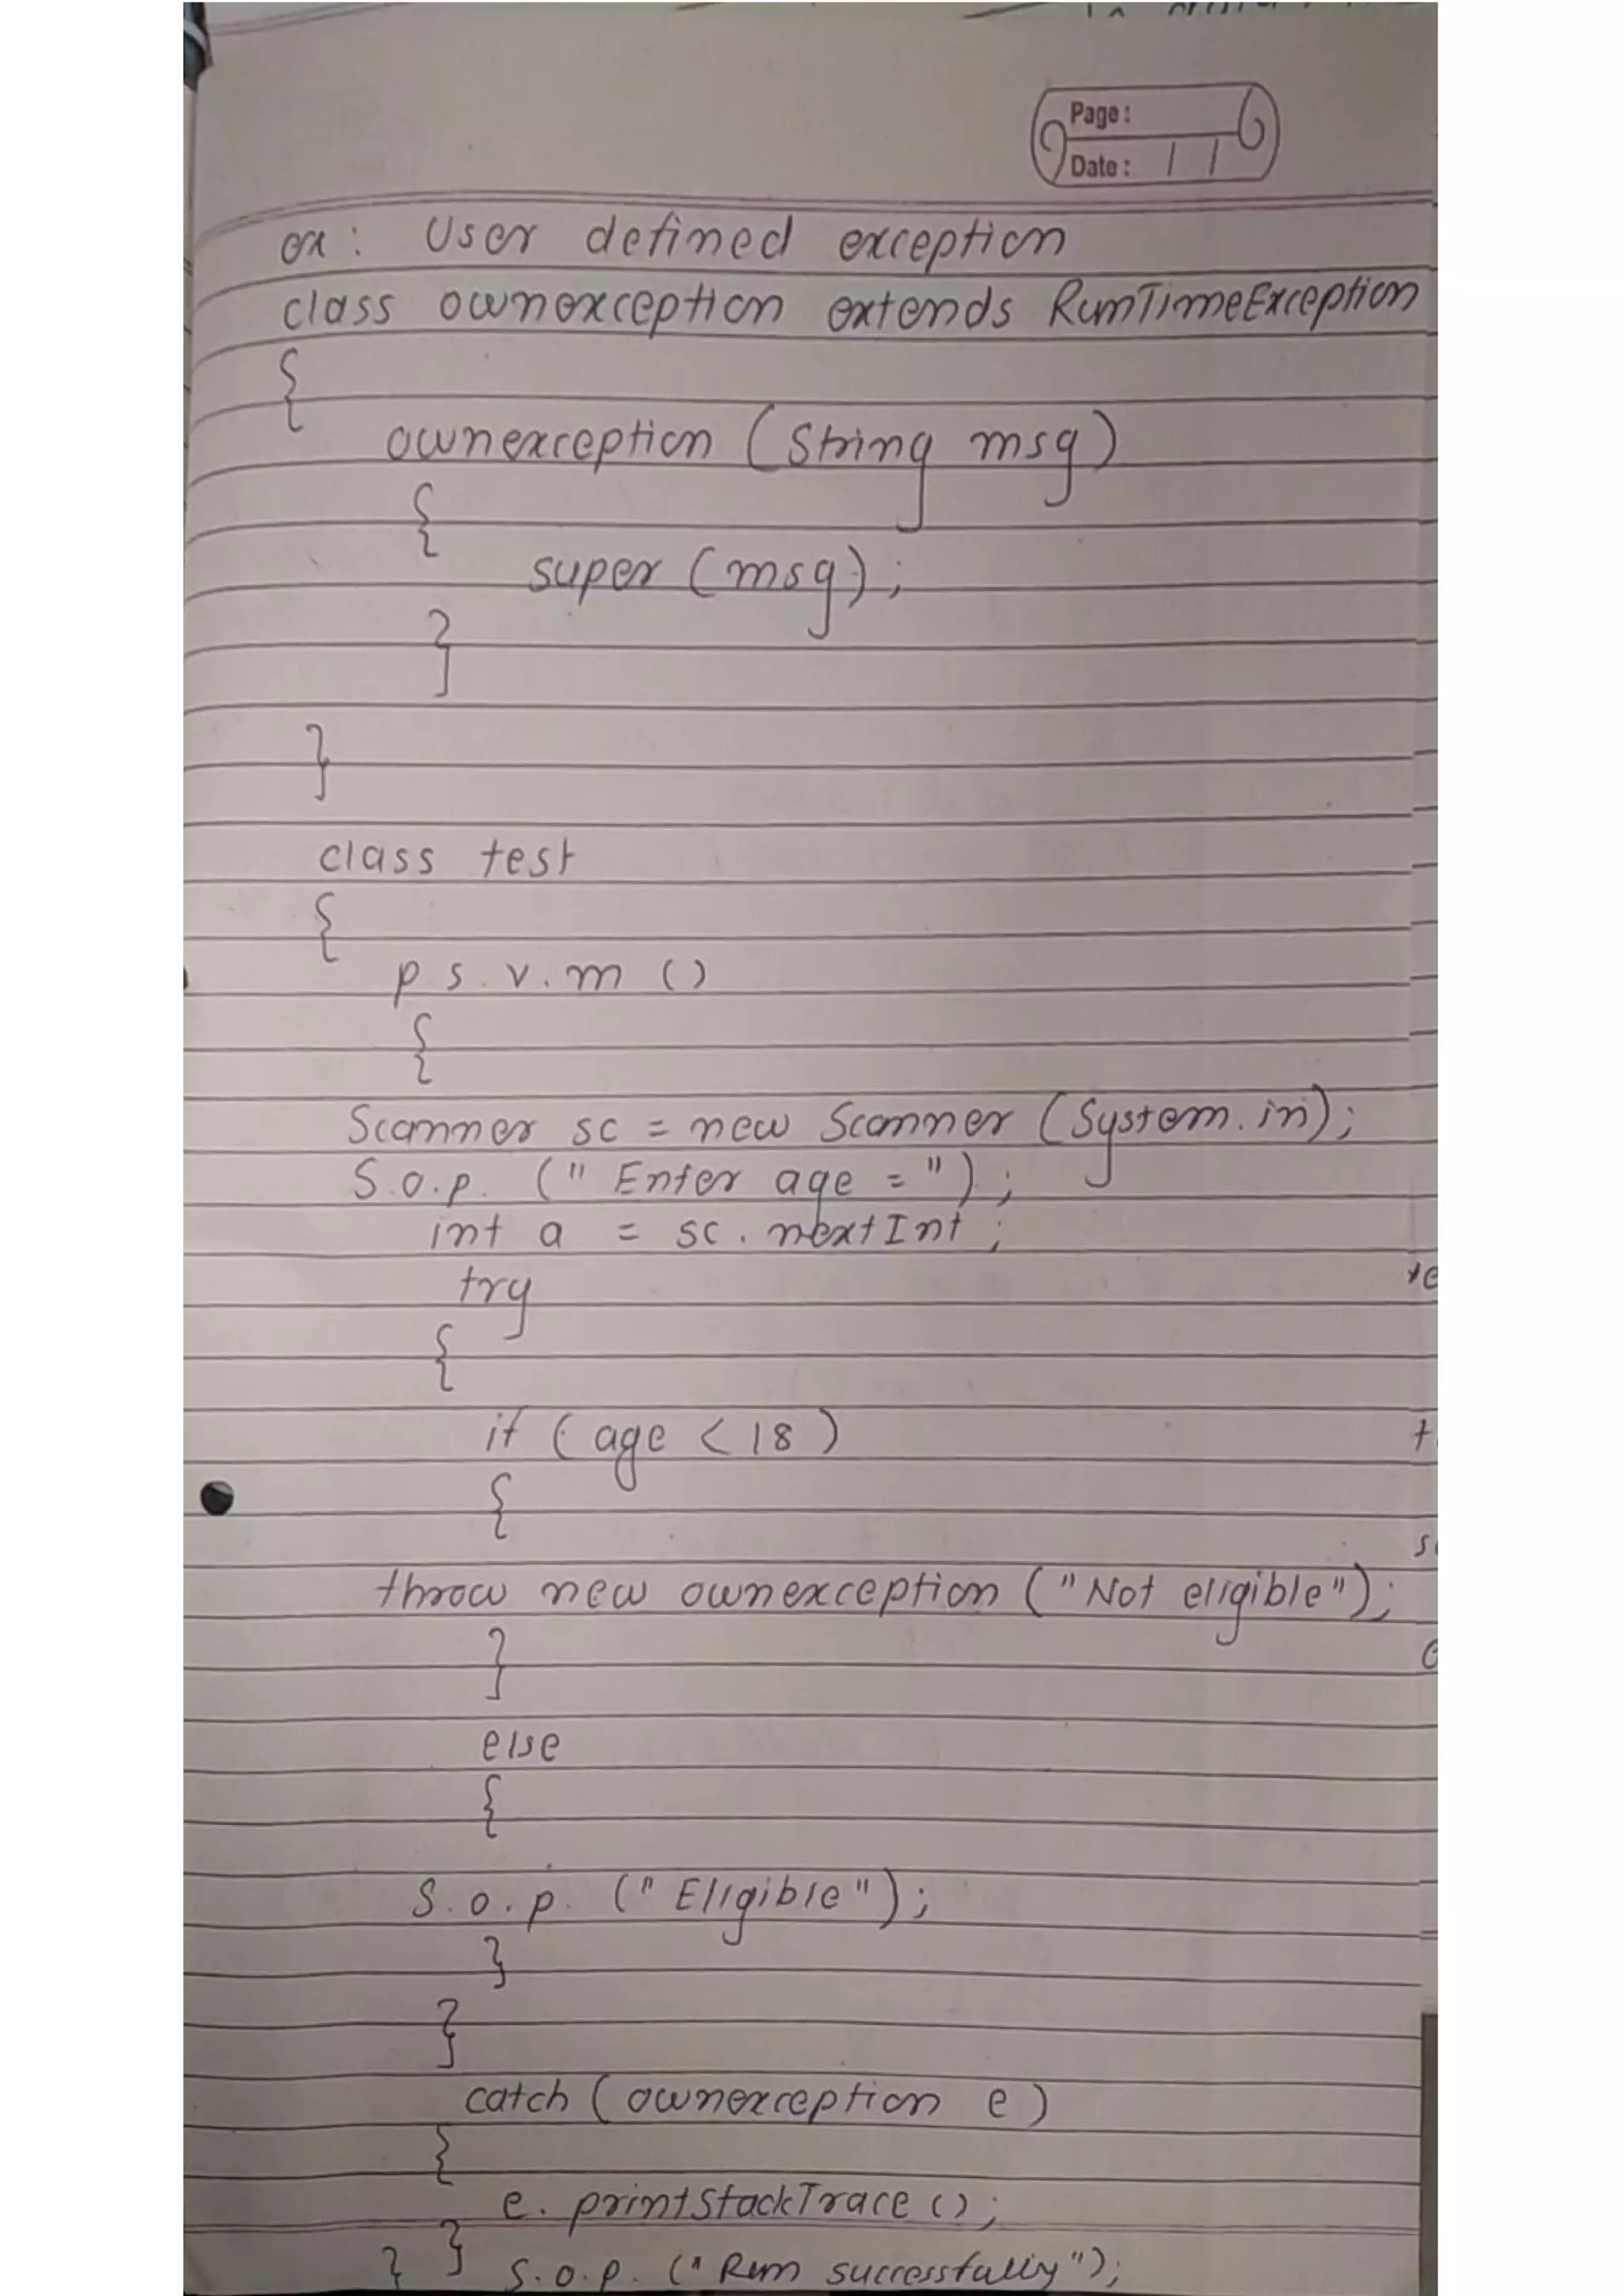 Page:
Date: / /
ex: User defined exception
class ownexception extends RunTimeException
{
ownexception (String msg)
{
super (msg);
}
}
class test
{
p s. v. m ()
{
Scanner sc = new Scanner (System.in);
S.o.p. (" Enter age = ");
int a = sc. nextInt ;
try
{
if ( age < 18 )
{
throw new ownexception ("Not eligible");
}
else
{
S.o.p. (" Eligible ");
}
}
catch ( ownexception e )
{
e. printStackTrace ();
} }
S.o.p. (" Run successfully");